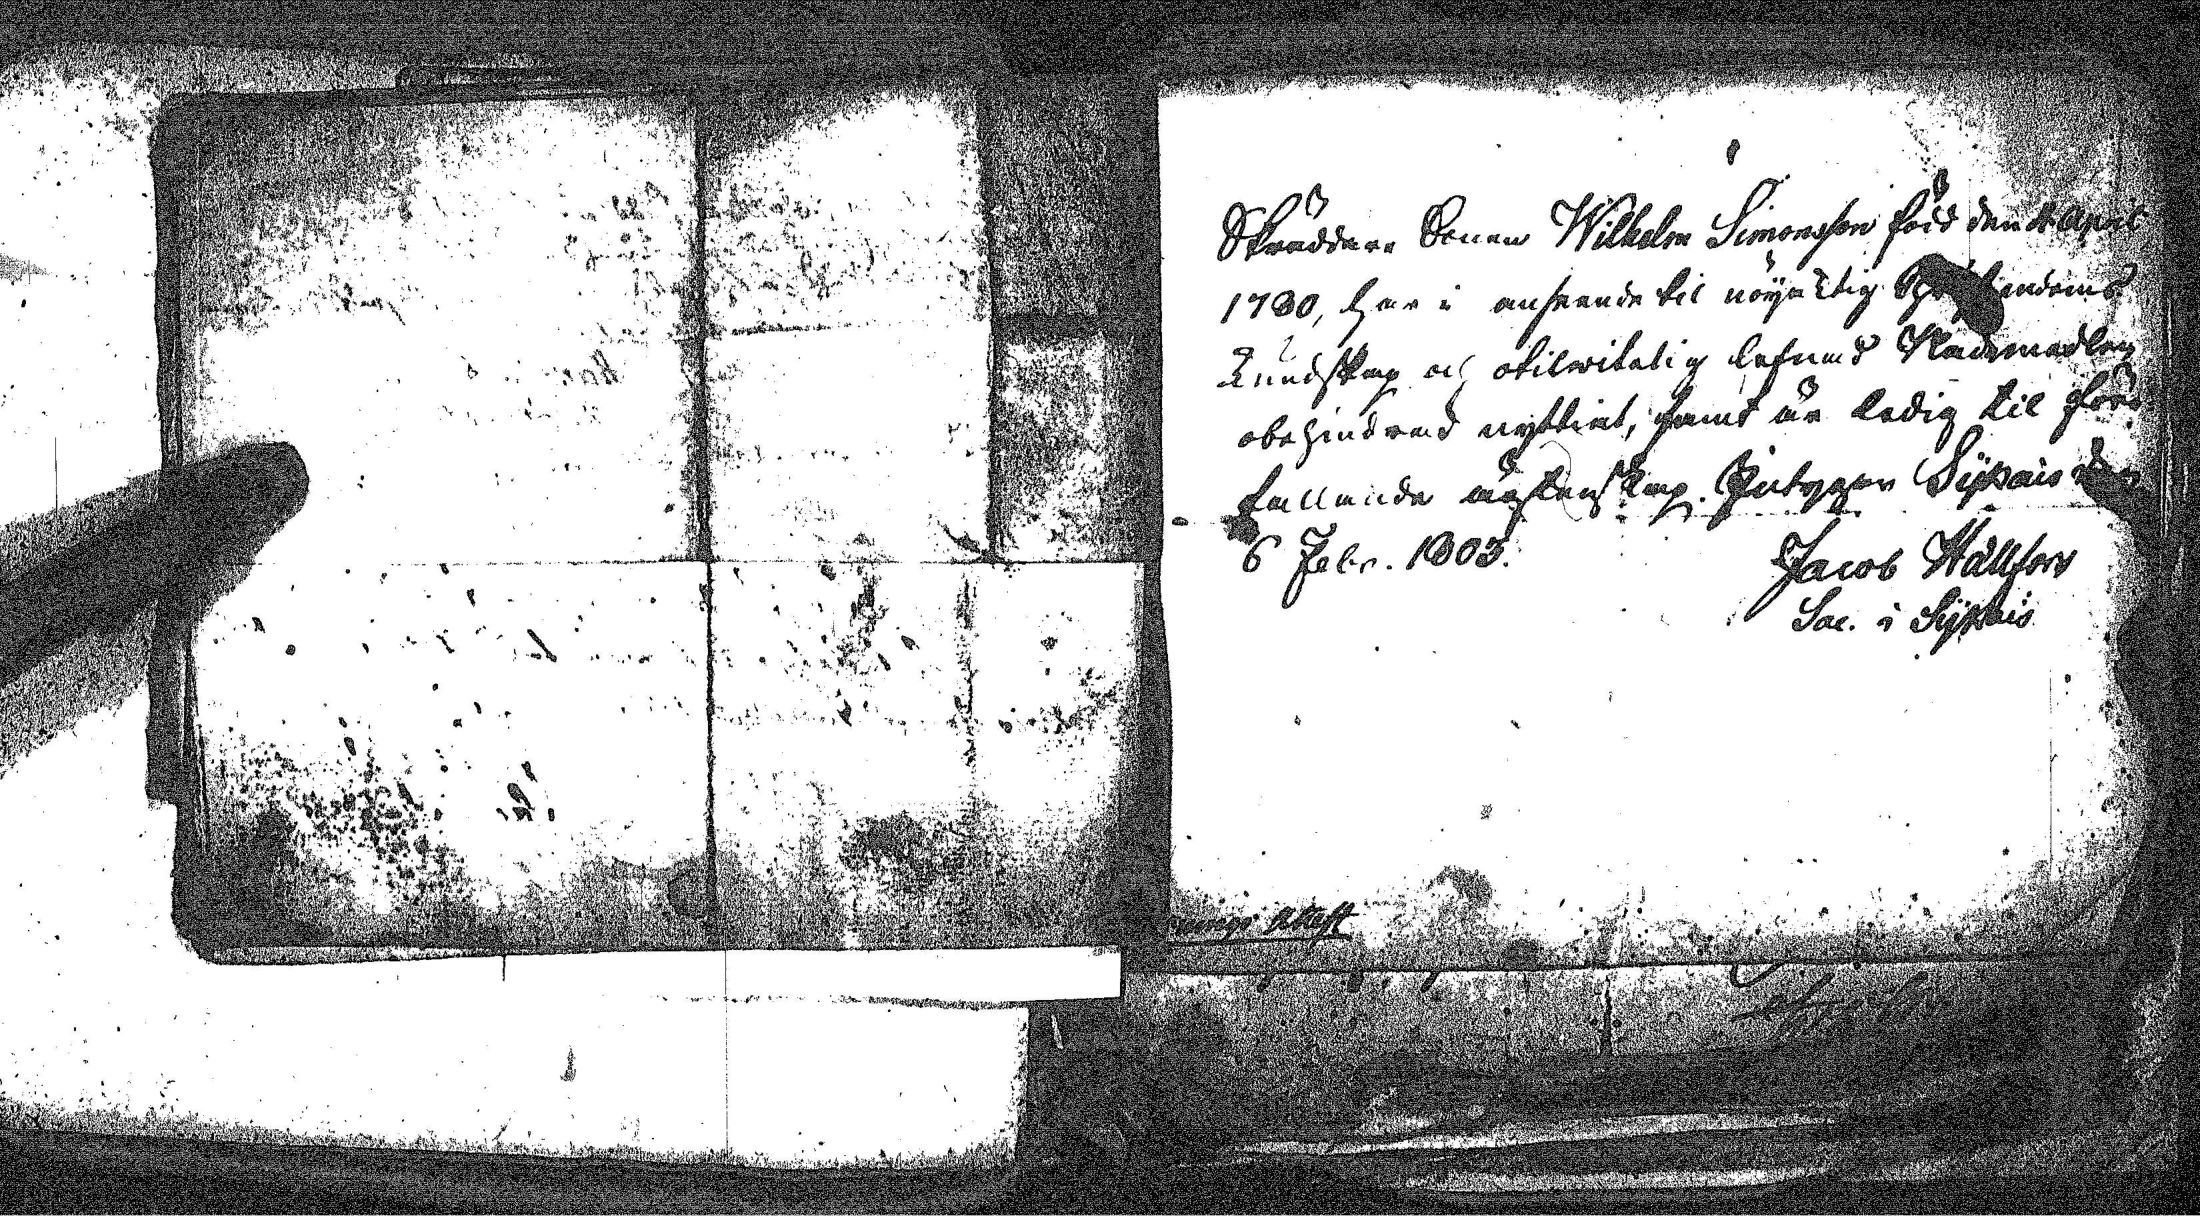 Skräddare Sonen Wilhelm Simonsson född den 4 April
1780, har i anseende til nöyaktig
Kundskap och otilwitelig lefnad Nademedlen
obehindrad nyttiat, samt är ledig til före
fallande äktenskap. Intygar Sippais den
6 Febr. 1803.
Jacob Wallfors
Sac. i Sippais
Attest